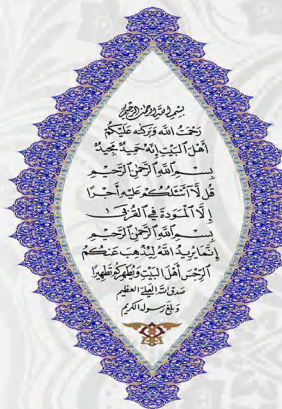 بسم الله الرحمن الرحيم
رَحْمَتُ اللَّهِ وَبَرَكَاتُهُ عَلَيْكُمْ
أَهْلَ الْبَيْتِ إِنَّهُ حَمِيدٌ مَجِيدٌ
بِسْمِ اللَّهِ الرَّحْمَٰنِ الرَّحِيمِ
قُل لَّا أَسْئَلُكُمْ عَلَيْهِ أَجْرًا
إِلَّا الْمَوَدَّةَ فِي الْقُرْبَىٰ
بِسْمِ اللَّهِ الرَّحْمَٰنِ الرَّحِيمِ
إِنَّمَا يُرِيدُ اللَّهُ لِيُذْهِبَ عَنْكُمُ
الرِّجْسَ أَهْلَ الْبَيْتِ وَيُطَهِّرَكُمْ تَطْهِيرًا
صدق الله العلي العظيم
وبلغ رسوله الكريم